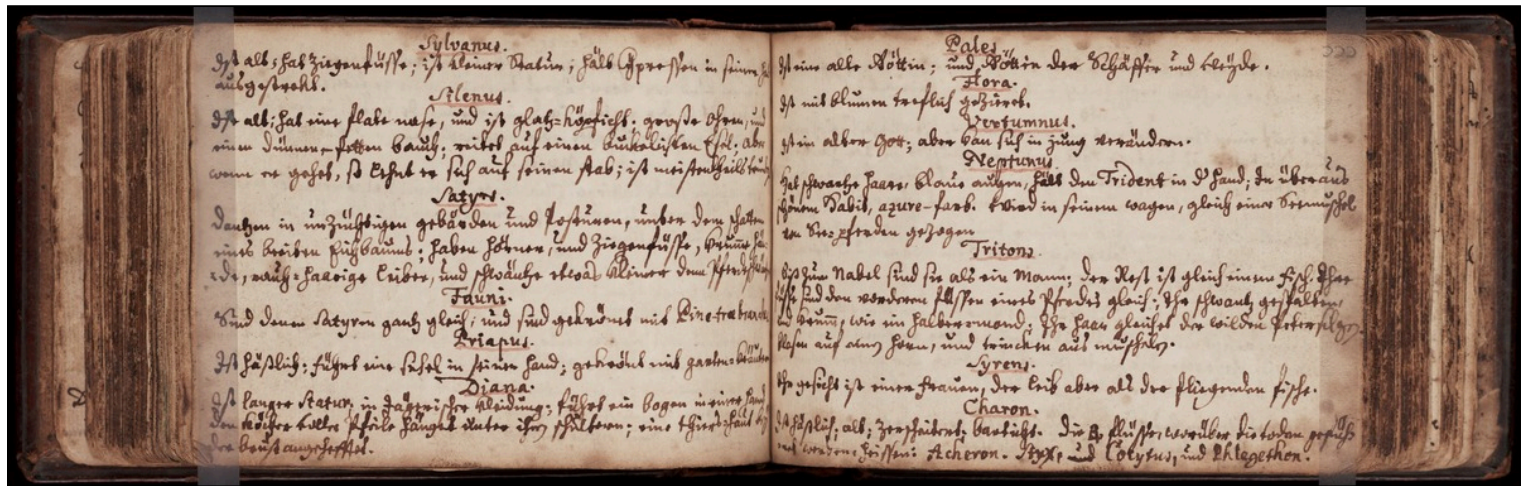 Sylvanus.
Ist alt; hat Ziegenfüsse; ist kleiner Statur; hält Cypressen in seiner
ausgestrekt.
Silenus.
Ist alt; hat eine flate nase, und ist glatz-köpficht. grosse ohren, und
einen dünnen, fetten bauch; reitet auf einen Esel; aber
wenn er gehet, so lehnt er sich auf seinen stab; ist meistentheils
Satyrs.
Dantzen in unzüchtigen gebärden und Posturen, unter dem schatten
eines breiten Eichbaums; haben hörner, und Ziegenfüsse, krume
rauch-haarige leiber, und schwäntze etwas kleiner dem
Fauni.
Sind denen Satyren gantz gleich; und sind gekrönet mit Pine-tree
Priapus.
Ist häßlich; führt eine sichel in seiner hand; gekrönt mit garten-kräuter
Diana.
Ist langer Statur, in Jägerischer kleidung; führt ein bogen in einer hand
den köcher voller Pfeile hänget unter ihren schultern; eine thiers-haut
der brust angehefftet.
Pales.
Ist eine alte Göttin; und Göttin der Schäffer und Weyde.
Flora.
Ist mit blumen treflich gezieret.
Vertumnus.
Ist ein alter Gott; aber kan sich in jung verändern.
Neptunus.
Hat schwartze haare, blaue augen, hält den Trident in d' hand; In überaus
schönem Habit, azure-farb. Wird in seinem wagen, gleich einer Seemuschel
von See-pferden gezogen
Tritons.
biß zum Nabel sind sie als ein Mann; der Rest ist gleich einem fisch. Ihre
füsse sind den vorderen füssen eines Pferdes gleich; Ihr schwantz gespalten,
und krumm, wie ein halber-mond; Ihr haar gleichet der wilden Petersilgen.
blasen auf horn, und trincken aus muscheln.
Syrens.
Ihr gesicht ist einer frauen, der leib aber als der fliegenden fische.
Charon.
Ist häßlich; alt; bärticht. Die flüsse, worüber die todten geführt
werden heissen: Acheron. Styx, und Cocytus, und Phlegethon.